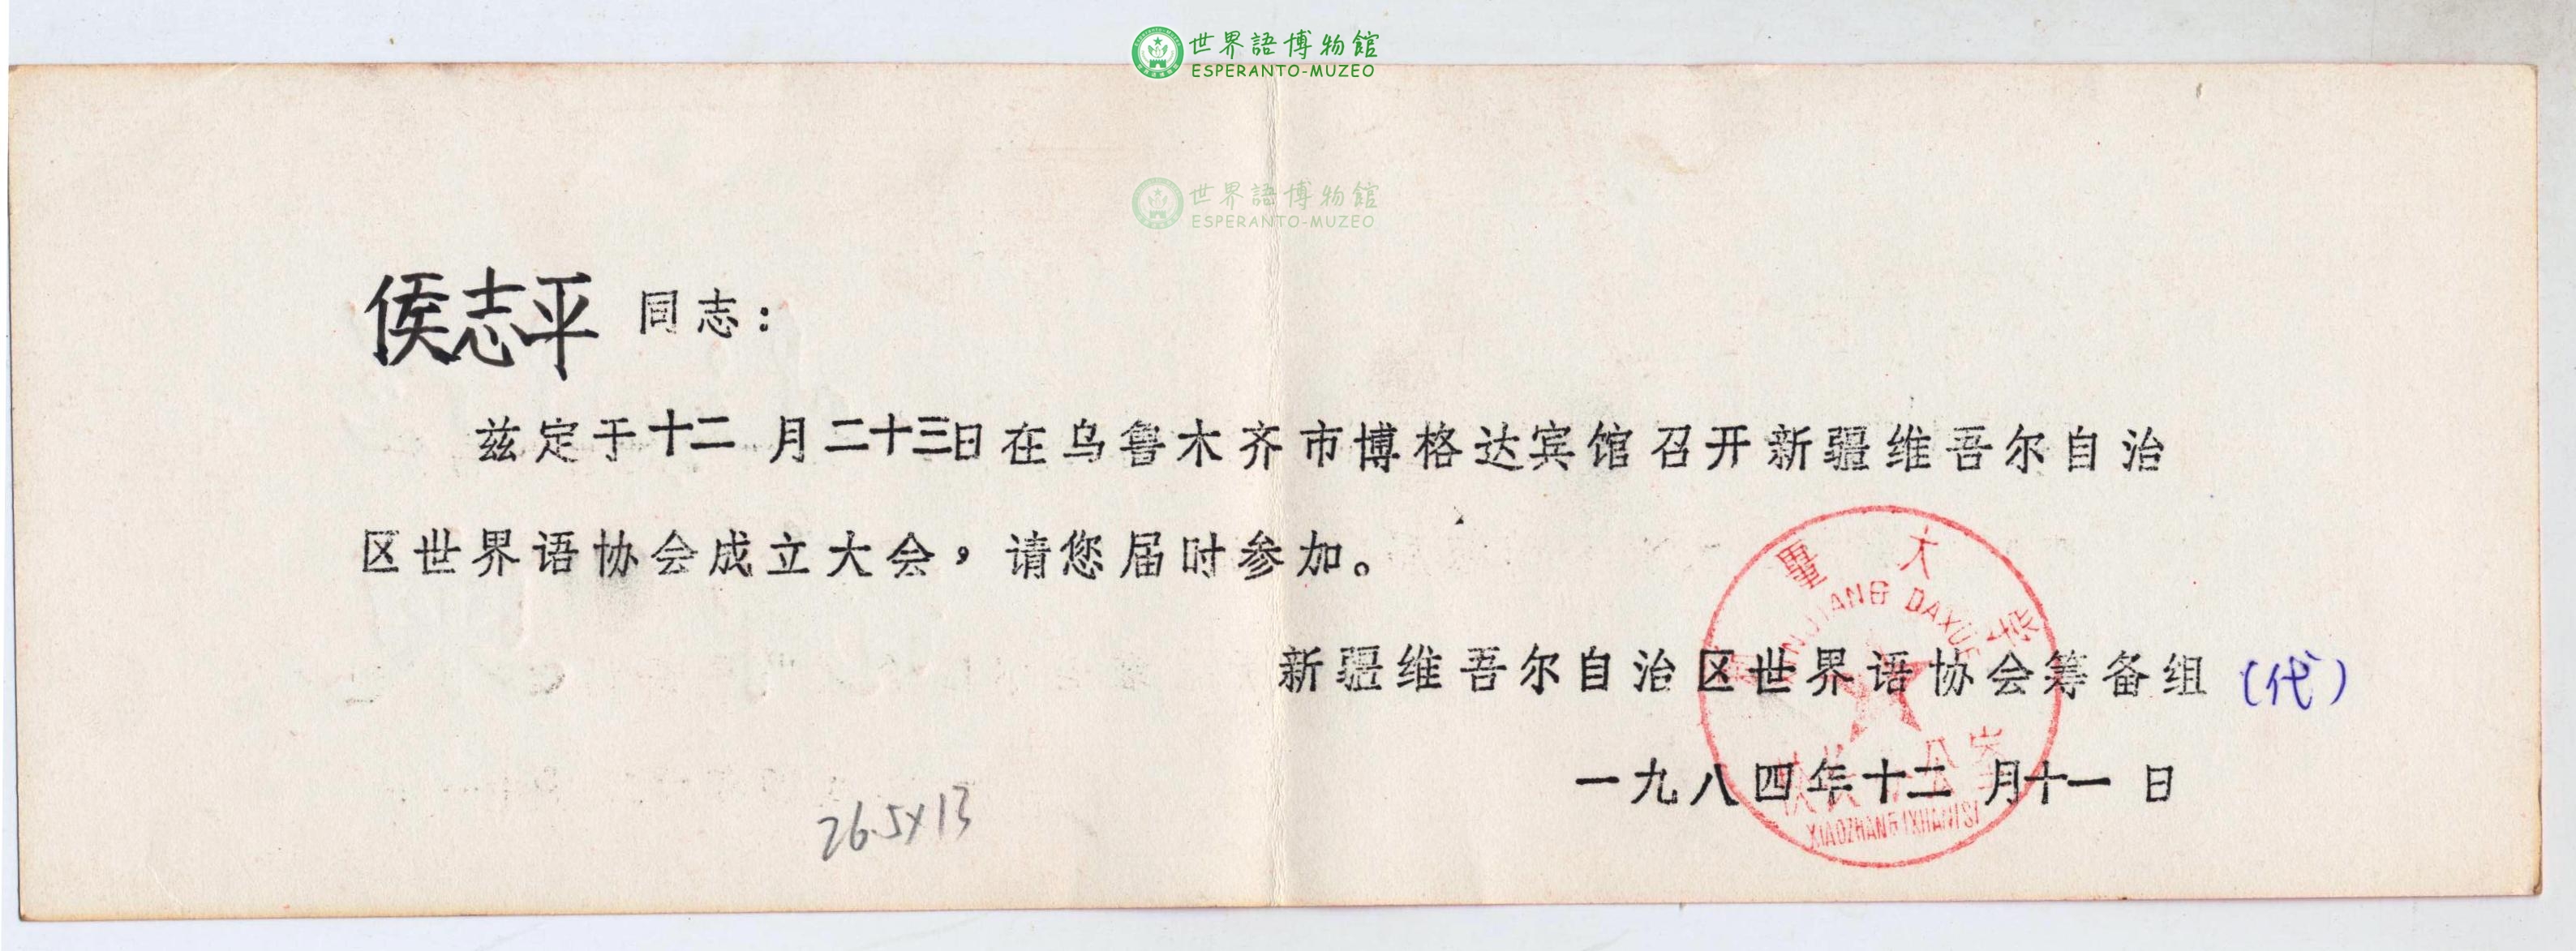 世界語博物館
ESPERANTO-MUZEO
世界語博物館
ESPERANTO-MUZEO
侯志平 同志：
兹定于十二月二十三日在乌鲁木齐市博格达宾馆召开新疆维吾尔自治
区世界语协会成立大会，请您届时参加。
大学
DAXUE
新疆维吾尔自治区世界语协会筹备组（代）
一九八四年十二月十一日
公室
26.5×13